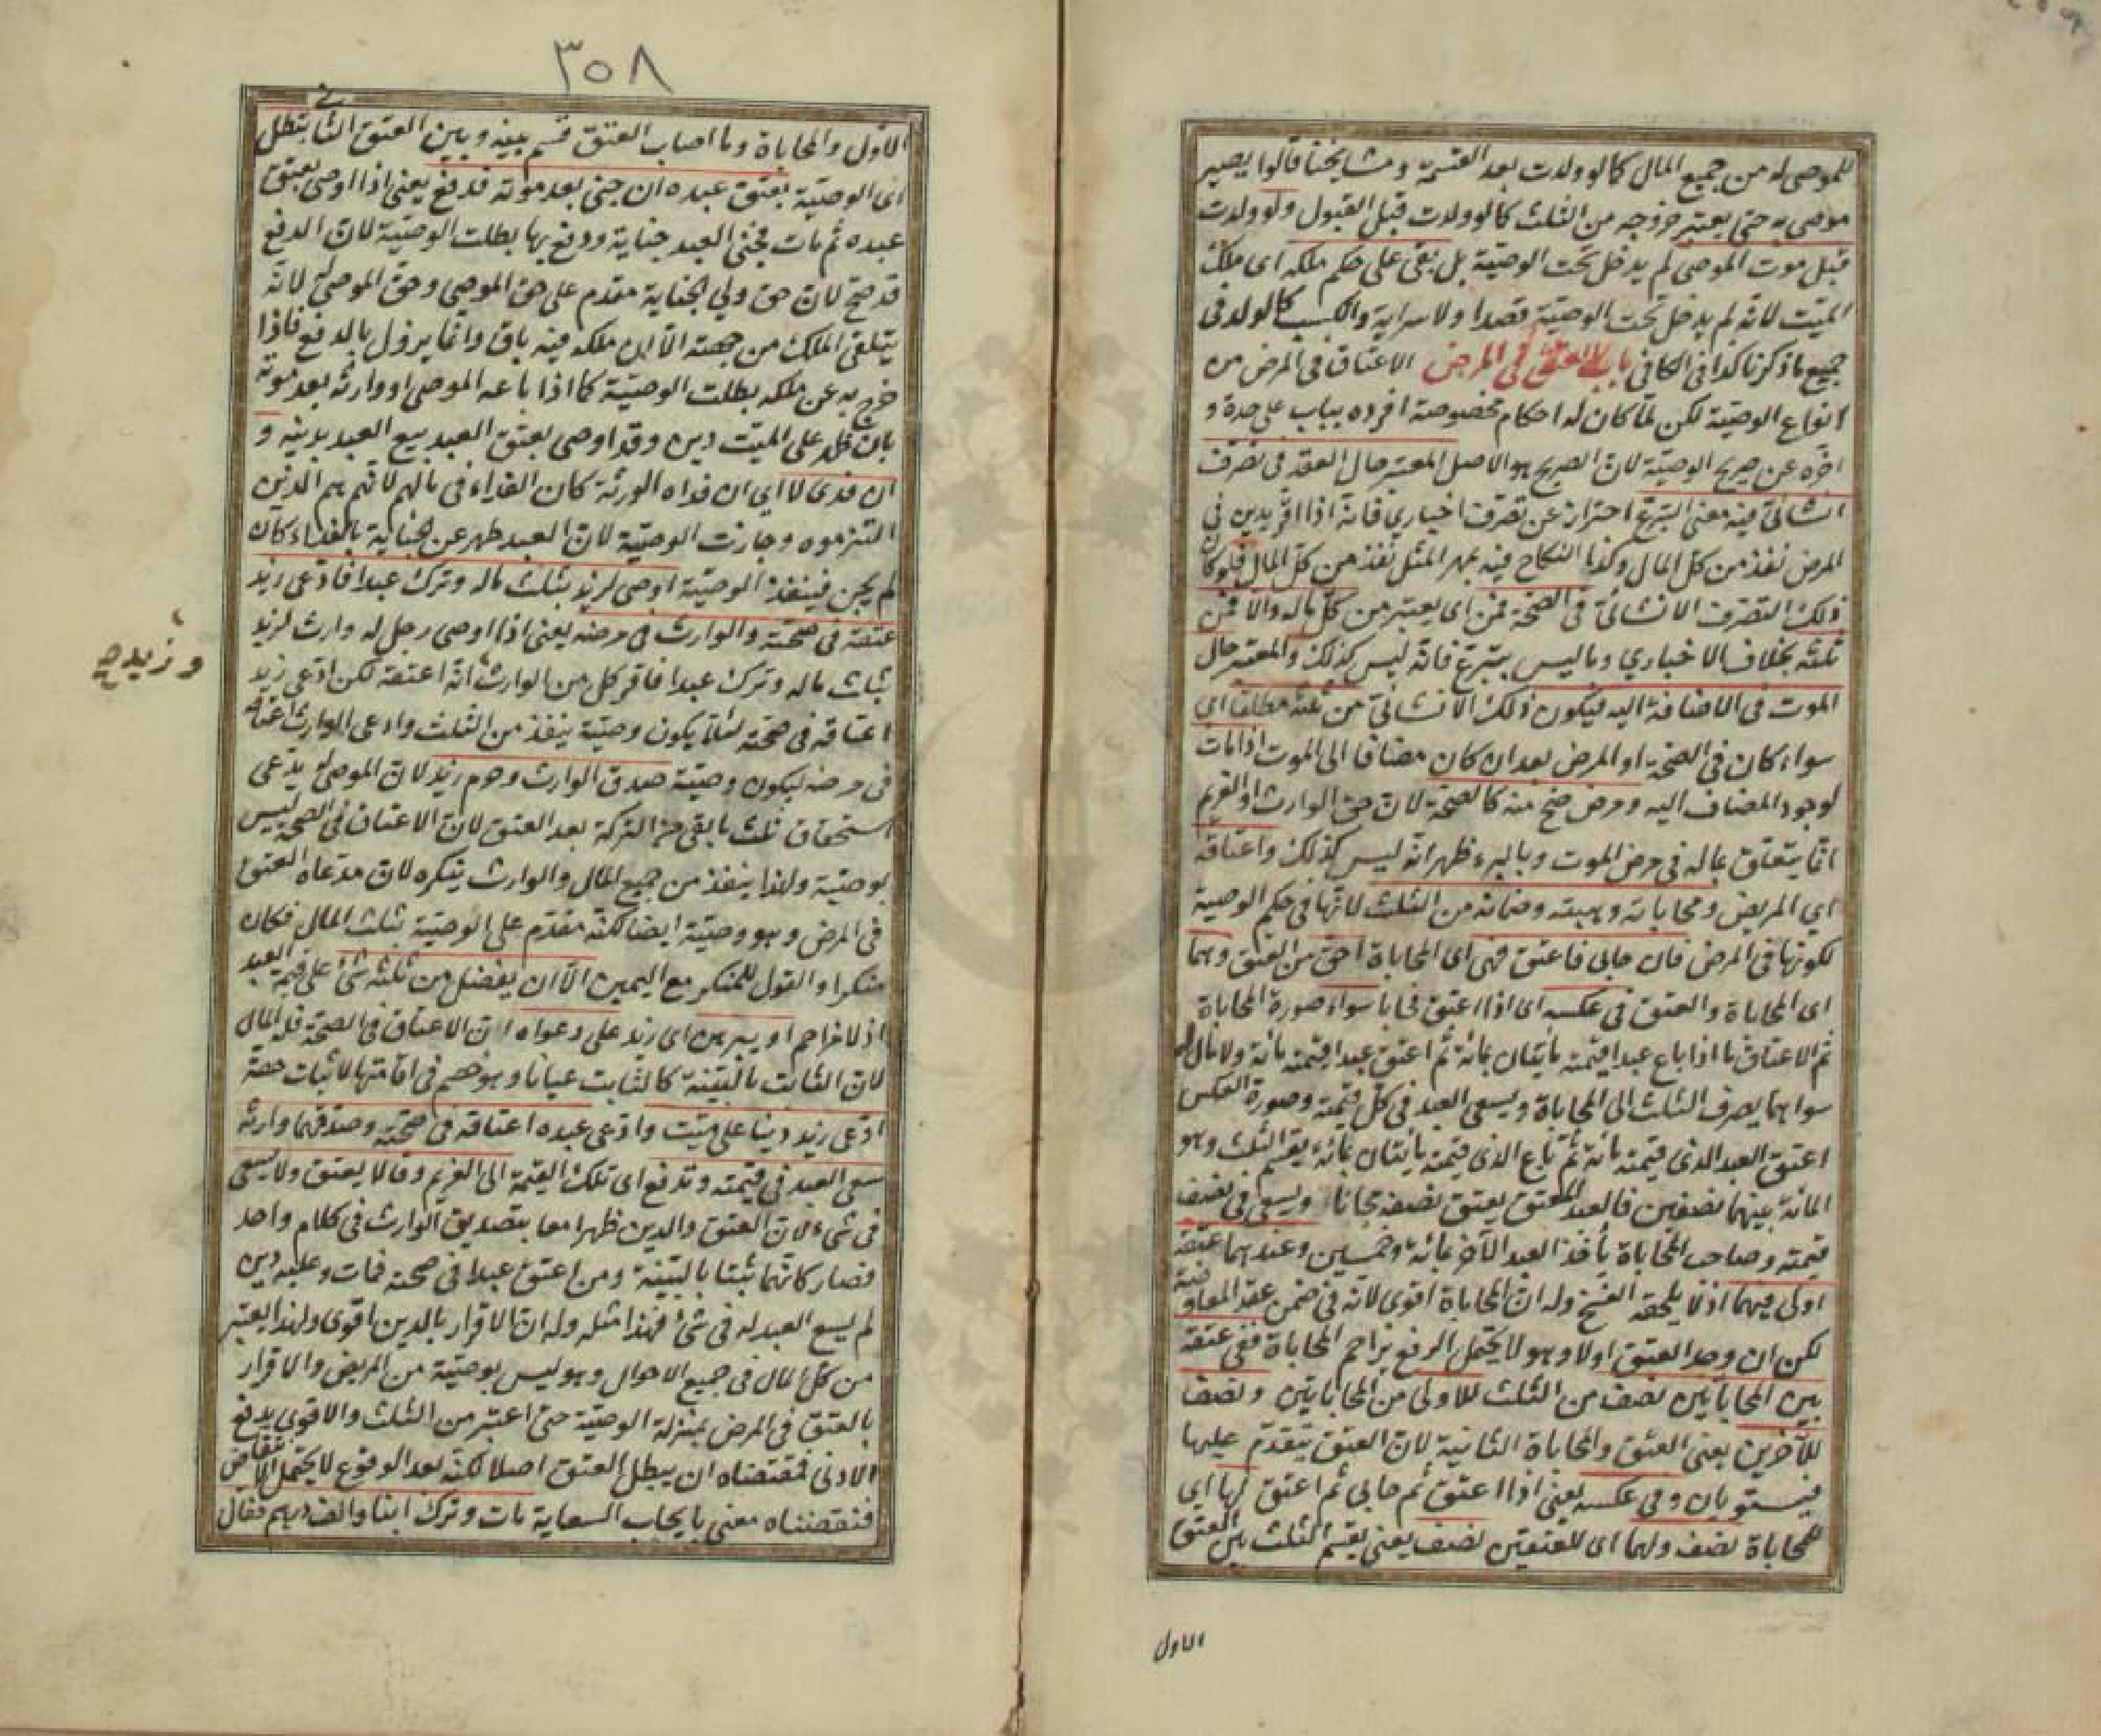 للموصى له من جميع المال كما لو ولدت بعد القسمة ومشايخنا قالوا يصير
موصى به حتى يعتبر خروجه من الثلث كما لو ولدت قبل القبول ولو ولدت
قبل موت الموصي لم يدخل تحت الوصية بل بقي على حكم ملكه اى ملك
الميت لانه لم يدخل تحت الوصية قصدا ولا سراية والكسب كالولد في
جميع ما ذكرنا كذا في الكافي باب العتق في المرض الاعتاق في المرض من
انواع الوصية لكن لما كان له احكام مخصوصة افرده بباب على حدة و
اخره عن صريح الوصية لان الصريح هو الاصل المعتبر حال العقد في تصرف
انشائي فيه معنى التبرع احتراز عن تصرف اخباري فانه اذا اقر بدين في
المرض نفذ من كل المال وكذا النكاح فيه بمهر المثل نفذ من كل المال فلو كان
ذلك التصرف الانشائي في الصحة فمن اى يعتبر من كل ماله والا فمن
ثلثه بخلاف الاخباري وما ليس بتبرع فانه ليس كذلك والمعتبر حال
الموت في الاضافة اليه فيكون ذلك الانشائي من ثلثه مطلقا اى
سواء كان في الصحة او المرض بعد ان كان مضافا الى الموت اذا مات
لوجود المضاف اليه ومرض صح منه كالصحة لان حق الوارث او الغريم
انما يتعلق بماله في مرض الموت وبالبرء ظهر انه ليس كذلك واعتاقه
اي المريض ومحاباته وهبته وضمانه من الثلث لانها في حكم الوصية
لكونها في المرض فان حابى فاعتق فهي اى المحاباة احق من العتق وهما
اى المحاباة والعتق في عكسه اى اذا اعتق فحابا سواء صورة المحاباة
ثم الاعتاق ما اذا باع عبدا قيمته مائتان بمائة ثم اعتق عبدا قيمته مائة ولا مال له
سواهما يصرف الثلث الى المحاباة ويسعى العبد في كل قيمته وصورة العكس
اعتق العبد الذي قيمته مائة ثم باع الذي قيمته مائتان بمائة يقسم الثلث وهو
المائة بينهما نصفين فالعبد المعتق يعتق نصفه مجانا ويسعى في نصف
قيمته وصاحب المحاباة يأخذ العبد الآخر بمائة وخمسين وعندهما عتقه
اولى فيهما اذ لا يلحقه الفسخ وله ان المحاباة اقوى لانه في ضمن عقد المعاوضة
لكن ان وجد العتق اولا وهو لا يحتمل الرفع يزاحم المحاباة ففي عتقه
بين المحاباتين نصف من الثلث للاولى من المحاباتين ونصف
للآخرين يعني العتق والمحاباة الثانية لان العتق يتقدم عليها
فيستويان وفي عكسه يعني اذا اعتق ثم حابى ثم اعتق لها اى
للمحاباة نصف ولهما اى للعتقين نصف يعني يقسم الثلث بين العتق
الاول
٣٥٨
الاول والمحاباة وما اصاب العتق قسم بينه وبين العتق الثاني تبطل
اى الوصية بعتق عبده ان جنى بعد موته فدفع يعني اذا اوصى بعتق
عبده ثم مات فجنى العبد جناية ودفع بها بطلت الوصية لان الدفع
قد صح لان حق ولي الجناية مقدم على حق الموصي وحق الموصى له لانه
يتلقى الملك من جهته الا ان ملكه فيه باق وانما يزول بالدفع فاذا
خرج به عن ملكه بطلت الوصية كما اذا باعه الموصي او وارثه بعد موته
بان ظهر على الميت دين وقد اوصى بعتق العبد بيع العبد بدينه و
ان فدى لا اي ان فداه الورثة كان الفداء في مالهم لانهم هم الذين
التزموه وجازت الوصية لان العبد طهر عن الجناية بالفداء كان
لم يجن فينفذ الوصية اوصى لزيد بثلث ماله وترك عبدا فادعى زيد
عتقه في صحته والوارث في مرضه يعني اذا اوصى رجل له وارث لزيد
بثلث ماله وترك عبدا فاقر كل من الوارث انه اعتقه لكن ادعى زيد
وزيد صح
اعتاقه في صحته لئلا يكون وصية ينفذ من الثلث وادعى الوارث اعتاقه
في مرضه ليكون وصية صدق الوارث وحرم زيد لان الموصى له يدعى
استحقاق ثلث ما بقي من التركة بعد العتق لان الاعتاق في الصحة ليس
بوصية ولهذا ينفذ من جميع المال والوارث ينكره لان مدعاه العتق
في المرض وهو وصية ايضا لكنه مقدم على الوصية بثلث المال فكان
منكرا والقول للمنكر مع اليمين الا ان يفضل من ثلثه شئ على قيمة العبد
اذ لا مزاحم او يبرهن اى زيد على دعواه ان الاعتاق في الصحة فله المال
لان الثابت بالبينة كالثابت عيانا وهو خصم في اقامتها لاثبات حقه
ادعى زيد دينا على ميت وادعى عبده اعتاقه في صحته وصدقهما وارثه
سعى العبد في قيمته وتدفع اى تلك القيمة الى الغريم وقالا يعتق ولا يسعى
في شئ لان العتق والدين ظهرا معا بتصديق الوارث في كلام واحد
فصار كانهما ثبتا بالبينة ومن اعتق عبدا في صحته فمات وعليه دين
لم يسع العبد له في شئ فهذا مثله وله ان الاقرار بالدين اقوى ولهذا يعتبر
من كل المال في جميع الاحوال وهو ليس بوصية من المريض والاقرار
بالعتق في المرض بمنزلة الوصية حتى اعتبر من الثلث والاقوى يدفع
الادنى فمقتضاه ان يبطل العتق اصلا لكنه بعد الوقوع لا يحتمل الانتقاض
فنقضناه معنى بايجاب السعاية مات وترك ابنا والف درهم فقال